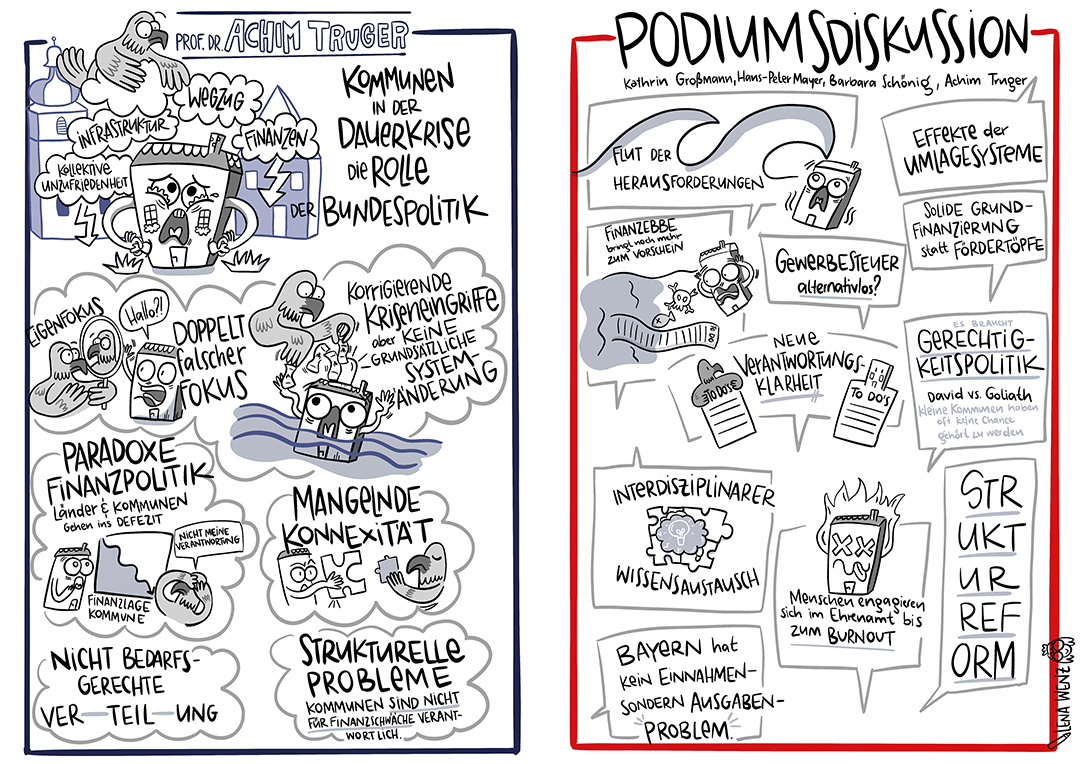 PROF. DR. ACHIM TRUGER
KOMMUNEN
IN DER
DAUERKRISE
DIE ROLLE
DER BUNDESPOLITIK
WEGZUG
INFRASTRUKTUR
FINANZEN
KOLLEKTIVE
UNZUFRIEDENHEIT
EIGENFOKUS
Hallo?!
DOPPELT
falscher
FOKUS
KORRIGIERENDE
KRISENEINGRIFFE
aber KEINE
GRUNDSÄTZLICHE
SYSTEM-
ÄNDERUNG
PARADOXE
FINANZPOLITIK
LÄNDER & KOMMUNEN
Gehen ins DEFEZIT
NICHT MEINE
VERANTWORTUNG
FINANZLAGE
KOMMUNE
MANGELNDE
KONNEXITÄT
NICHT BEDARFS-
GERECHTE
VER-TEIL-UNG
STRUKTURELLE
PROBLEME
KOMMUNEN SIND NICHT
FÜR FINANZSCHWÄCHE VERANT-
WORTLICH.
PODIUMSDISKUSSION
Kathrin Großmann, Hans-Peter Mayer, Barbara Schönig, Achim Truger
FLUT DER
HERAUSFORDERUNGEN
EFFEKTE der
UMLAGESYSTEME
SOLIDE GRUND-
FINANZIERUNG
statt FÖRDERTÖPFE
FINANZEBBE
bringt noch mehr
ZUM VORSCHEIN
GEWERBESTEUER
alternativlos?
NEUE
VERANTWORTUNGS-
KLARHEIT
TO DO'S
TO DO'S
ES BRAUCHT
GERECHTIG-
KEITSPOLITIK
DAVID vs. GOLIATH
kleine Kommunen haben
oft keine Chance
gehört zu werden
INTERDISZIPLINÄRER
WISSENSAUSTAUSCH
Menschen engagieren
sich im Ehrenamt bis
zum BURNOUT
STR
UKT
UR
REF
ORM
BAYERN hat
KEIN EINNAHMEN-
SONDERN AUSGABEN-
PROBLEM.
LENA WENZ